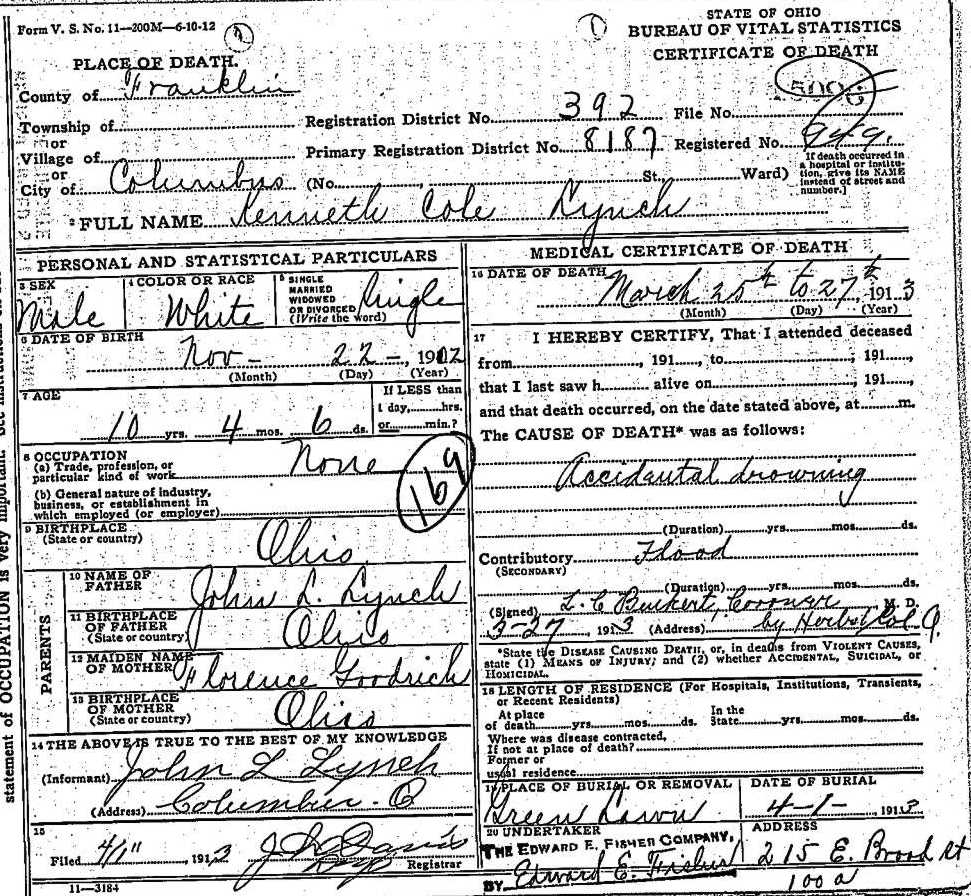 Form V. S. No. 11—200M—6-10-12
STATE OF OHIO
BUREAU OF VITAL STATISTICS
CERTIFICATE OF DEATH
PLACE OF DEATH.
County of Franklin
Township of
or
Village of
or
City of Columbus (No. St. Ward)
Registration District No. 392 File No.
Primary Registration District No. 8187 Registered No. 949.
If death occurred in
a hospital or institu-
tion, give its NAME
instead of street and
number.]
2 FULL NAME Kenneth Cole Lynch
PERSONAL AND STATISTICAL PARTICULARS
3 SEX
Male
4 COLOR OR RACE
White
5 SINGLE
MARRIED
WIDOWED
OR DIVORCED
(Write the word)
Single
6 DATE OF BIRTH
Nov- 22-, 1902
(Month) (Day) (Year)
7 AGE
10 yrs. 4 mos. 6 ds.
If LESS than
1 day, hrs.
or min.?
8 OCCUPATION
(a) Trade, profession, or
particular kind of work None
(b) General nature of industry,
business, or establishment in
which employed (or employer)
169
9 BIRTHPLACE
(State or country) Ohio
PARENTS
10 NAME OF
FATHER John L. Lynch
11 BIRTHPLACE
OF FATHER
(State or country) Ohio
12 MAIDEN NAME
OF MOTHER Florence Goodrich
13 BIRTHPLACE
OF MOTHER
(State or country) Ohio
14 THE ABOVE IS TRUE TO THE BEST OF MY KNOWLEDGE
(Informant) John L Lynch
(Address) Columbus. O
15
Filed 4/1", 1913
Registrar
11—3184
MEDICAL CERTIFICATE OF DEATH
16 DATE OF DEATH
March 25th to 27th, 1913
(Month) (Day) (Year)
17 I HEREBY CERTIFY, That I attended deceased
from , 191 , to , 191 ,
that I last saw h alive on , 191 ,
and that death occurred, on the date stated above, at m.
The CAUSE OF DEATH* was as follows:
Accidental drowning
(Duration) yrs. mos. ds.
Contributory Flood
(SECONDARY)
(Duration) yrs. mos. ds.
(Signed) Coroner M. D.
3-27 1913 (Address) by
*State the DISEASE CAUSING DEATH, or, in deaths from VIOLENT CAUSES,
state (1) MEANS OF INJURY; and (2) whether ACCIDENTAL, SUICIDAL, or
HOMICIDAL.
18 LENGTH OF RESIDENCE (For Hospitals, Institutions, Transients,
or Recent Residents)
At place
of death yrs. mos. ds.
In the
State yrs. mos. ds.
Where was disease contracted,
If not at place of death?
Former or
usual residence
19 PLACE OF BURIAL OR REMOVAL
Green Lawn
DATE OF BURIAL
4-1- 1913
20 UNDERTAKER
THE EDWARD E. FISHER COMPANY,
BY Edward E. Fisher
ADDRESS
215 E. Broad st
100 a
statement of OCCUPATION is very important.